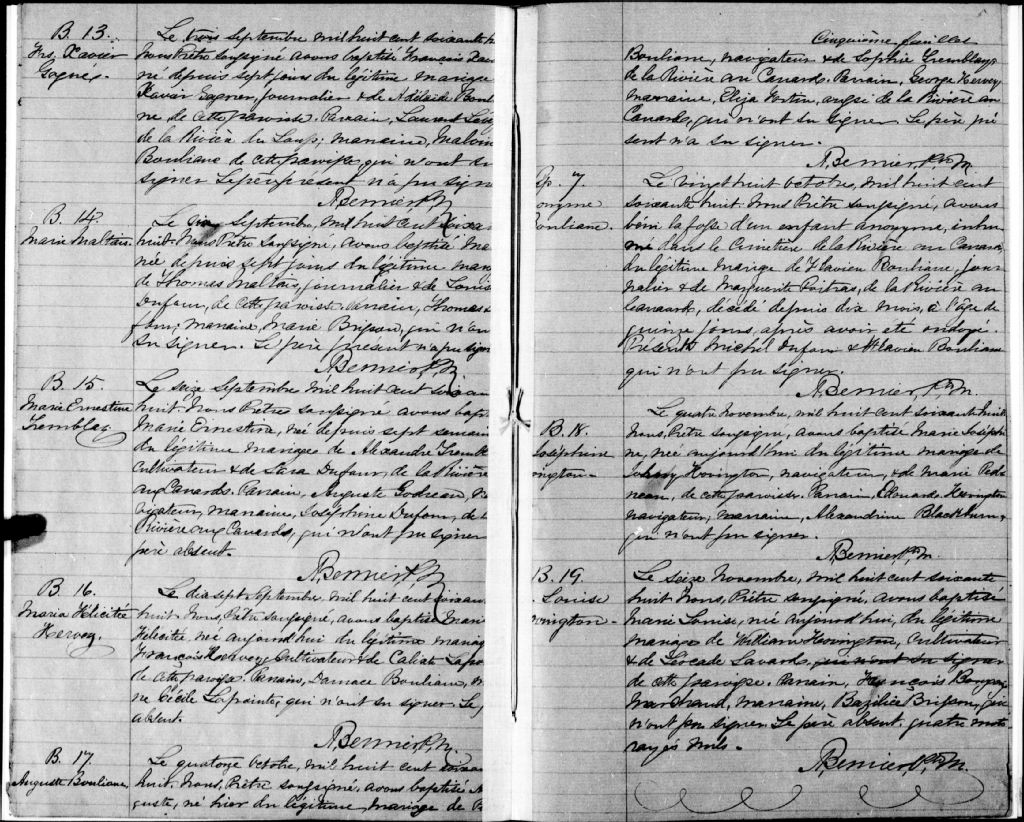 B. 13.
Frs. Xavier
Gagné.
Le trois Septembre mil huit cent soixante h
Nous Prêtre soussigné avons baptisé François Xav
né depuis sept jours du légitime mariage
Xavier Gagner, journalier & de Adélaïde Boul
ne de cette paroisse. Parrain, Laurent
de la Rivière du Loup; marraine, Malvin
Bouliane de cette paroisse, qui n'ont su
signer. Le père présent n'a pu sign
A Bernier Ptr. M
B. 14.
Marie Maltais.
Le dix Septembre, mil huit cent soixa
huit. Nous Prêtre soussigné, avons baptisé Ma
née depuis sept jours du légitime mari
de Thomas Maltais, journalier & de Louise
Dufour, de cette paroisse. Parrain, Thomas
four; marraine, Marie Brisson, qui n'ont
su signer. Le père présent n'a pu sign
A Bernier Ptr. M.
B. 15.
Marie Ernestine
Tremblay
Le seize Septembre mil huit cent soixan
huit. Nous Prêtre soussigné avons bap
Marie Ernestine, né depuis sept semain
du légitime mariage de Alexandre Trembl
cultivateur & de Sara Dufour, de la Rivière
aux Canards. Parrain, Auguste Godreau, na
vigateur, marraine, Joséphine Dufour, de l
Rivière aux Canards, qui n'ont pu signer
père absent.
A Bernier Ptr. M
B. 16.
Maria Félicité
Hervey.
Le dix sept Septembre. mil huit cent soixan
huit. Nous, Prêtre soussigné, avons baptisé Mari
Félicité, né aujourd'hui du légitime mariag
François Hervey, Cultivateur & de Lapo
de cette paroisse. Parrain, Damase Bouliane, m
ne Cécile Lapointe, qui n'ont su signer. Le p
absent.
A Bernier Ptr. M.
B. 17.
Auguste Bouliane
Le quatorze octobre, mil huit cent soixan
huit. Nous, Prêtre soussigné, avons baptisé A
guste, né hier du légitime mariage de
Cinquième feuillet
Bouliane, navigateur & de Sophie Tremblay
de la Rivière au Canard. Parrain, George Hervey
marraine, Eliza Fortin, aussi de la Rivière au
Canards, qui n'ont su signer. Le père pré
sent n'a su signer.
A Bernier Ptr. M
Sp. 7.
onyme
Bouliane.
Le vingt huit octobre, mil huit cent
soixante huit. Nous Prêtre soussigné, avons
béni la fosse d'un enfant anonyme, inhu
mé dans le Cimetière de la Rivière au Canard,
du légitime mariage de Flavien Bouliane, jour
nalier & de Marguerite Poitras, de la Rivière au
Canards, décédé depuis dix mois, à l'âge de
quinze jours, après avoir été ondoyé.
Présents Michel Dufour & Flavien Bouliane
qui n'ont pu signer.
A Bernier, Ptr. M.
B. 18.
Joséphine
ington-
Le quatre Novembre, mil huit cent soixante huit
Nous, Prêtre soussigné, avons baptisé Marie Joséphi
ne, née aujourd'hui du légitime mariage de
Hovington, navigateur, & de Marie
neau, de cette paroisse. Parrain, Edouard Hovington
navigateur; marraine, Alexandrine Blackburn,
qui n'ont pu signer.
A Bernier Ptr. M.
B. 19.
Louise
vington-
Le seize Novembre, mil huit cent soixante
huit Nous, Prêtre soussigné, avons baptisé
Marie Louise, né aujourd'hui, du légitime
mariage de William Hovington, Cultivateur
& de Léocade Savard, qui n'ont su signer
de cette paroisse. Parrain, François
marchand, marraine, Basilice Brisson, qui
n'ont pu signer. Le père absent. quatre mots
rayés nuls.
A Bernier, Ptr. M.